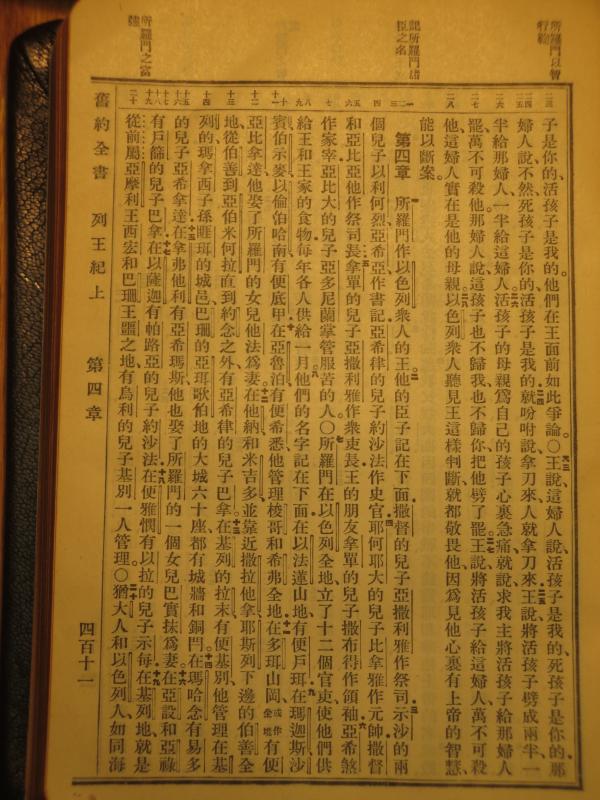 所羅門以智行鞫
記所羅門諸臣之名
所羅門之富強
子是你的、活孩子是我的。他們在王面前如此爭論。○王說、這婦人說、活孩子是我的、死孩子是你的、那
婦人說、不然、死孩子是你的、活孩子是我的、就吩咐說、拿刀來、人就拿刀來、王說、將活孩子劈成兩半、一
半給那婦人、一半給這婦人。活孩子的母親爲自己的孩子心裏急痛、就說、求我主將活孩子給那婦人
罷、萬不可殺他、那婦人說、這孩子也不歸我、也不歸你、把他劈了罷。王說、將活孩子給這婦人、萬不可殺
他、這婦人實在是他的母親。以色列衆人聽見王這樣判斷、就都敬畏他、因爲見他心裏有上帝的智慧、
能以斷案。
第四章 所羅門作以色列衆人的王。他的臣子記在下面、撒督的兒子亞撒利雅作祭司、示沙的兩
個兒子以利何烈、亞希亞、作書記、亞希律的兒子約沙法作史官、耶何耶大的兒子比拿雅作元帥、撒督
和亞比亞他作祭司長、拿單的兒子亞撒利雅作衆吏長、王的朋友拿單的兒子撒布得作領袖、亞希煞
作家宰、亞比大的兒子亞多尼蘭掌管服苦的人。○所羅門在以色列全地立了十二個官吏、使他們供
給王和王家的食物、每年各人供給一月。他們的名字記在下面、在以法蓮山地有便戶珥、在瑪迦斯、沙
賓、伯示麥、以倫伯哈南、有便底甲、在亞魯泊有便希悉、他管理梭哥和希弗全地、在多珥山岡或作全地有便
亞比拿達、他娶了所羅門的女兒他法爲妻、在他納和米吉多、並靠近撒拉他拿、耶斯列下邊的伯善全
地、從伯善到亞伯米何拉直到約念之外、有亞希律的兒子巴拿、在基列的拉末有便基別、他管理在基
列的瑪拿西子孫睚珥的城邑、巴珊的亞珥歌伯地的大城六十座、都有城牆和銅閂、在瑪哈念有易多
的兒子亞希拿達、在拿弗他利有亞希瑪斯、他也娶了所羅門的一個女兒巴實抹爲妻、在亞設和亞祿
有戶篩的兒子巴拿、在以薩迦有帕路亞的兒子約沙法、在便雅憫有以拉的兒子示每、在基列地、就是
從前屬亞摩利王西宏和巴珊王噩之地、有烏利的兒子基別一人管理。○猶大人和以色列人、如同海
舊約全書 列王紀上 第四章 四百十一